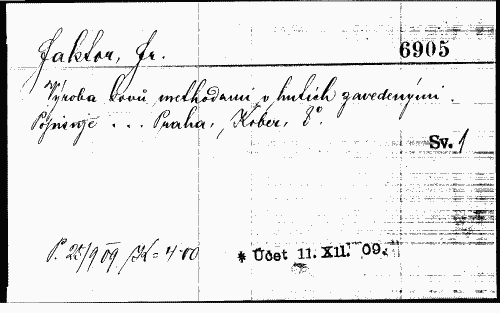 Faktor, Fr.
6905
Výroba kovů methodami v hutích zavedenými.
Popisuje ... Praha, Kober, 8°.
Sv. 1
P. 25/9 09 /K = 4·00
* Účet 11. XII. 09.